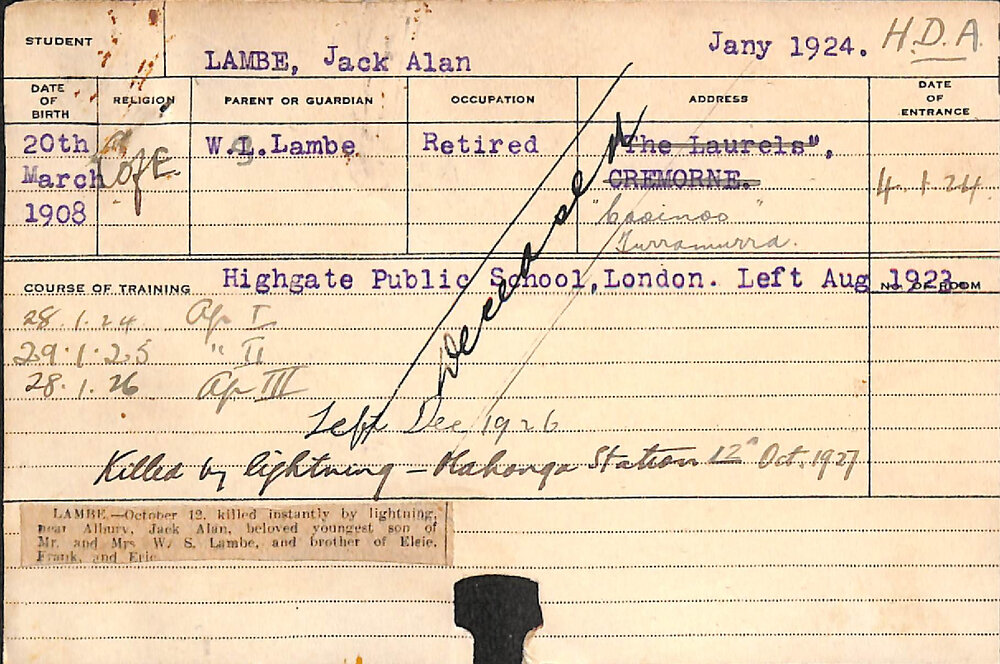 STUDENT
LAMBE, Jack Alan
Jany 1924.
H.D.A.
DATE OF BIRTH
RELIGION
PARENT OR GUARDIAN
OCCUPATION
ADDRESS
DATE OF ENTRANCE
20th March 1908
C of E.
W.S. Lambe
Retired
"The Laurels",
CREMORNE.
"Casinos"
Turramurra.
4.1.24
Deceased
COURSE OF TRAINING
Highgate Public School, London. Left Aug 1923.
NO. OF ROOM
28.1.24 Ag I
29.1.25 " II
28.1.26 Ag III
Left Dec 1926
Killed by lightning – Mahonga Station 12th Oct. 1927
LAMBE.—October 12, killed instantly by lightning,
near Albury, Jack Alan, beloved youngest son of
Mr. and Mrs W. S. Lambe, and brother of Elsie,
Frank, and Eric